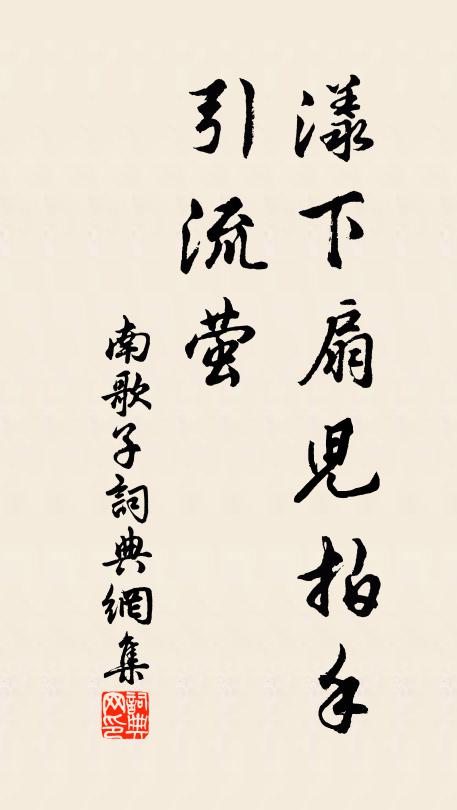 漾下扇兒拍手
引流萤
南歌子詞典網集
詞典
网印